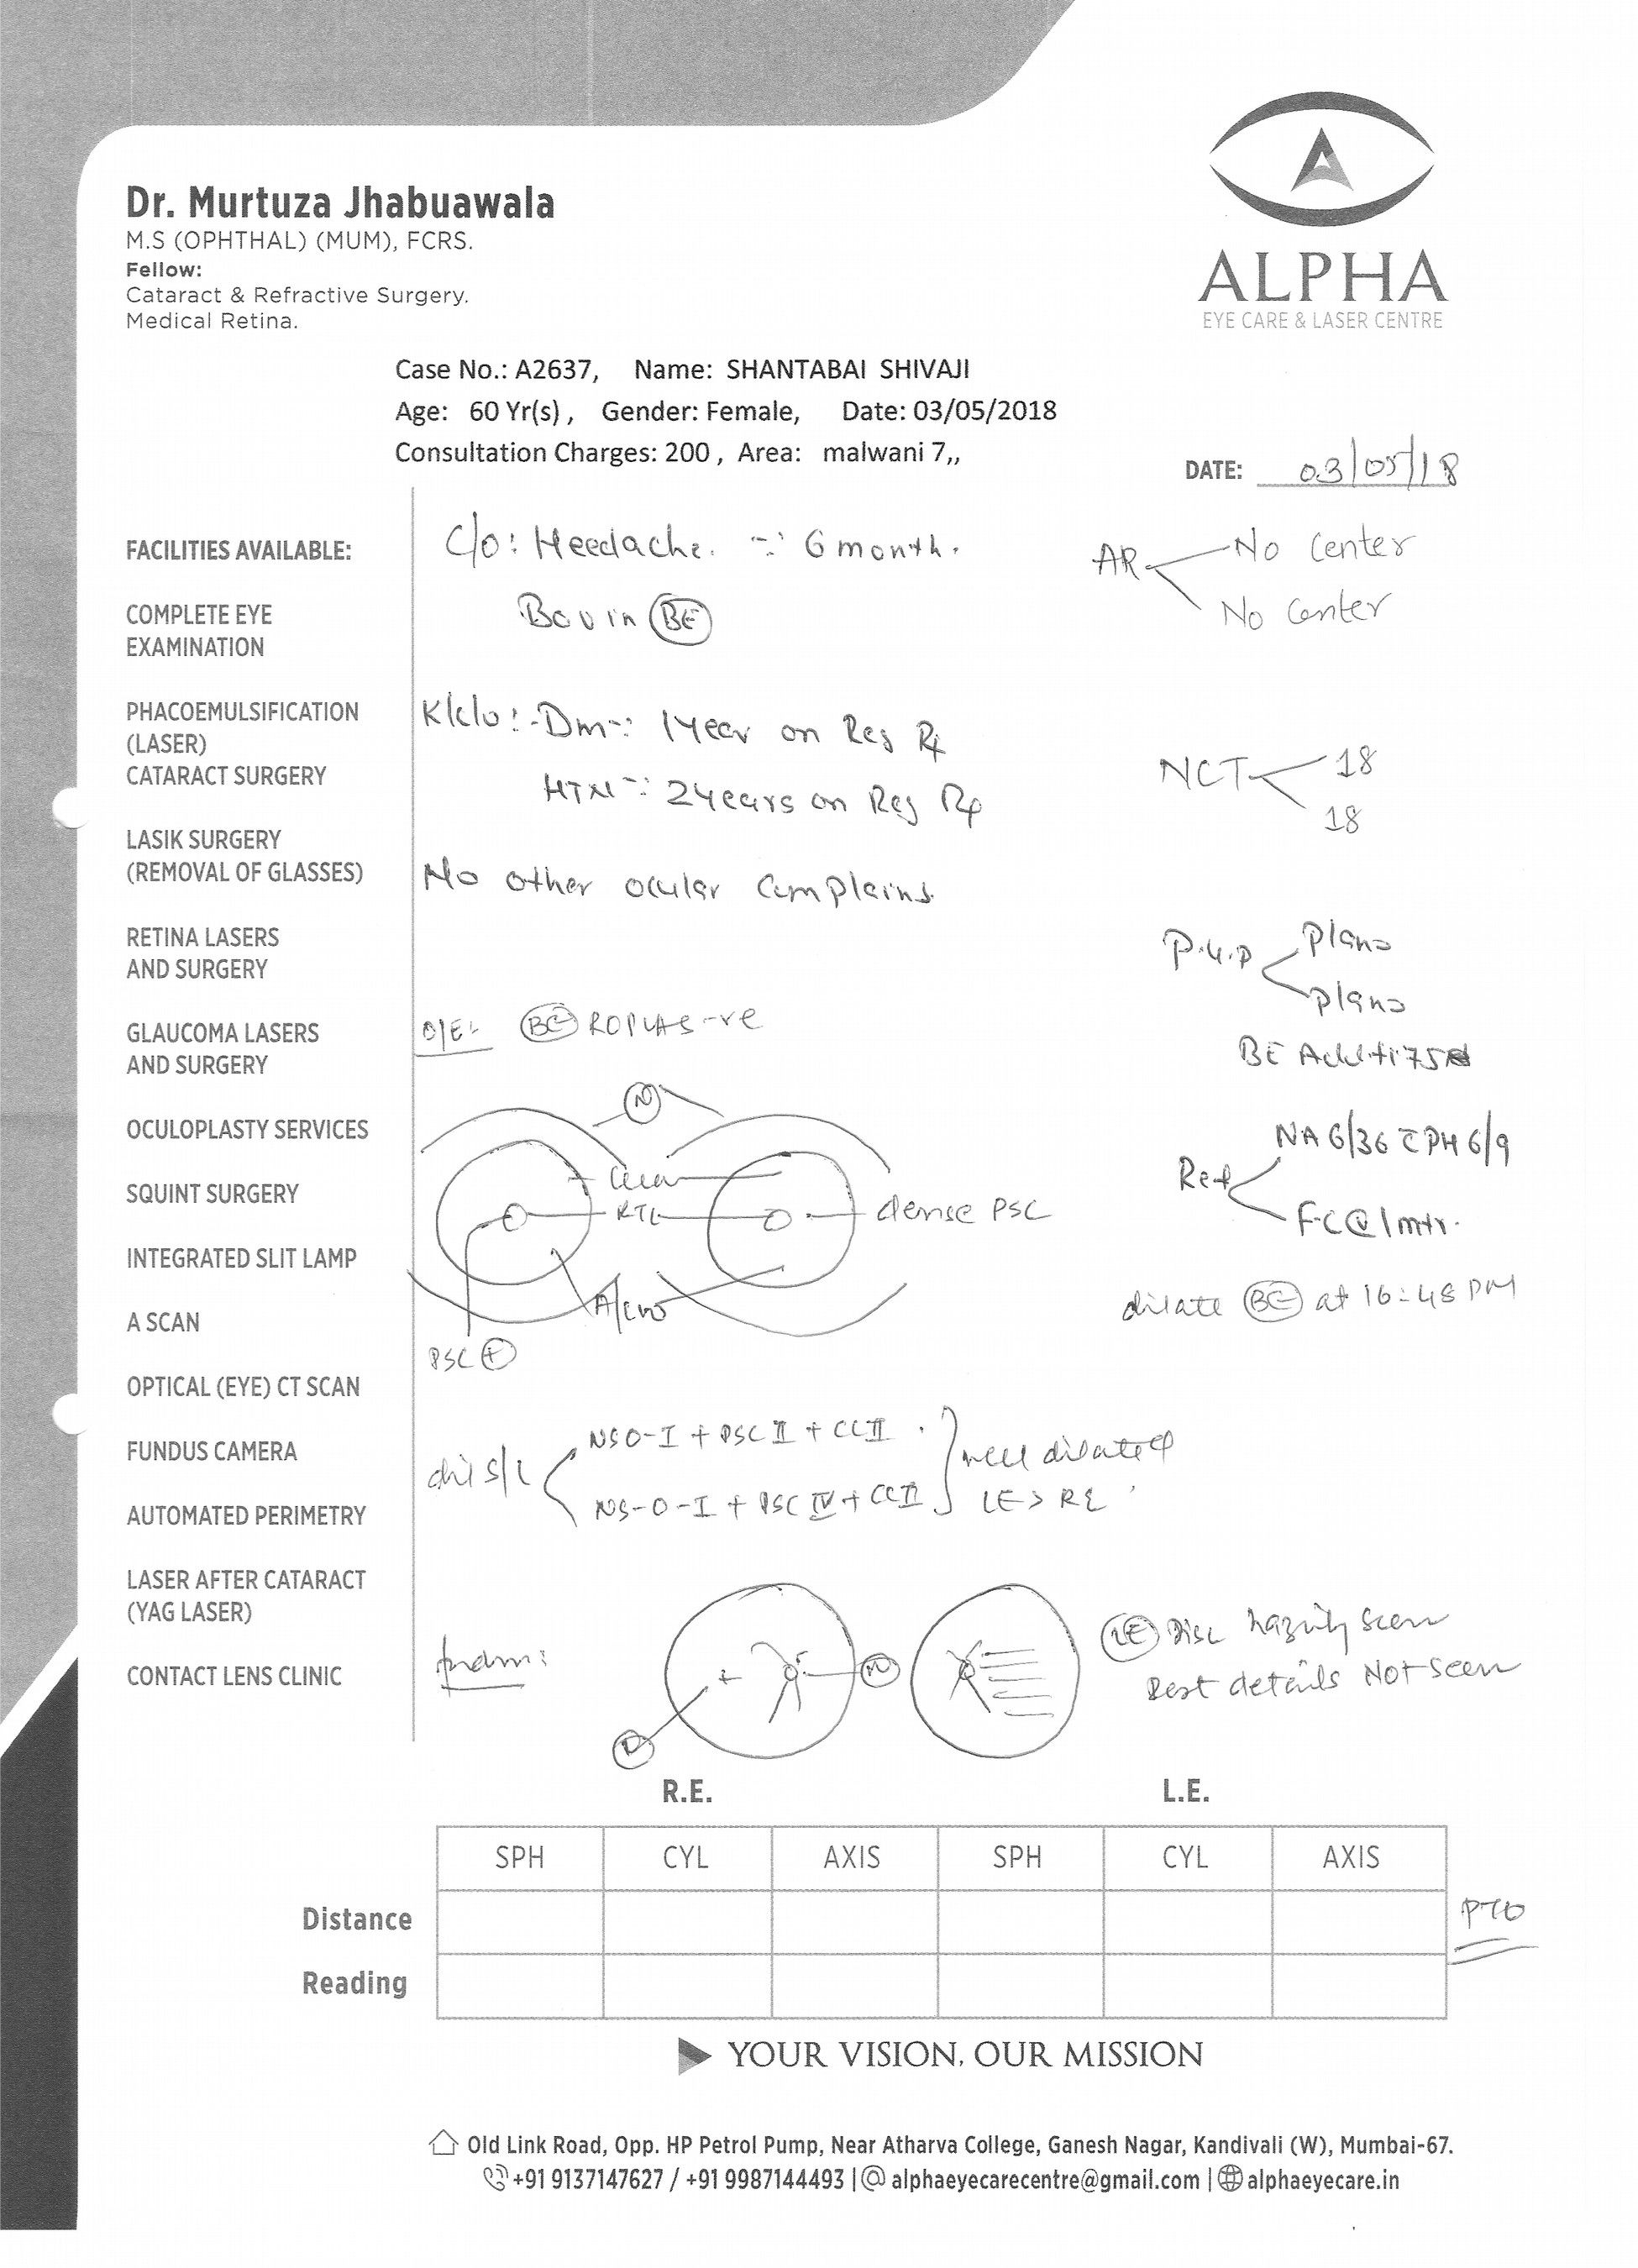 Dr. Murtuza Jhabuawala
M.S (OPHTHAL) (MUM), FCRS.
Fellow:
Cataract & Refractive Surgery.
Medical Retina.
ALPHA
EYE CARE & LASER CENTRE
Case No.: A2637, Name: SHANTABAI SHIVAJI
Age: 60 Yr(s) , Gender: Female, Date: 03/05/2018
Consultation Charges: 200 , Area: malwani 7,,
DATE: 03/05/18
FACILITIES AVAILABLE:
COMPLETE EYE
EXAMINATION
PHACOEMULSIFICATION
(LASER)
CATARACT SURGERY
LASIK SURGERY
(REMOVAL OF GLASSES)
RETINA LASERS
AND SURGERY
GLAUCOMA LASERS
AND SURGERY
OCULOPLASTY SERVICES
SQUINT SURGERY
INTEGRATED SLIT LAMP
A SCAN
OPTICAL (EYE) CT SCAN
FUNDUS CAMERA
AUTOMATED PERIMETRY
LASER AFTER CATARACT
(YAG LASER)
CONTACT LENS CLINIC
C/o: Headache. ∵ 6 month.
BOV in BE
K/c/o: - Dm ∵ 1 Year on Reg Rx
HTN ∵ 2 Years on Reg Rx
No other ocular complains
O/E:- BE ROPLAS -ve
N
Clear
RTL
dense PSC
PSC +
dil S/L
NS O-I + PSC II + CC II
NS-O-I + PSC IV + CC II
well dilated
LE > RE
N
LE Disc hazily seen
Rest details Not seen
AR
No Center
No Center
NCT
18
18
P.G.P
plano
plano
BE Add +1.75
Ret
NA 6/36 c̄ PH 6/9
F.C @ 1 mtr.
dilate BE at 16:48 PM
R.E. L.E.
SPH CYL AXIS SPH CYL AXIS
Distance
Reading
PTO
YOUR VISION, OUR MISSION
Old Link Road, Opp. HP Petrol Pump, Near Atharva College, Ganesh Nagar, Kandivali (W), Mumbai-67.
+91 9137147627 / +91 9987144493 | @ alphaeyecarecentre@gmail.com | alphaeyecare.in